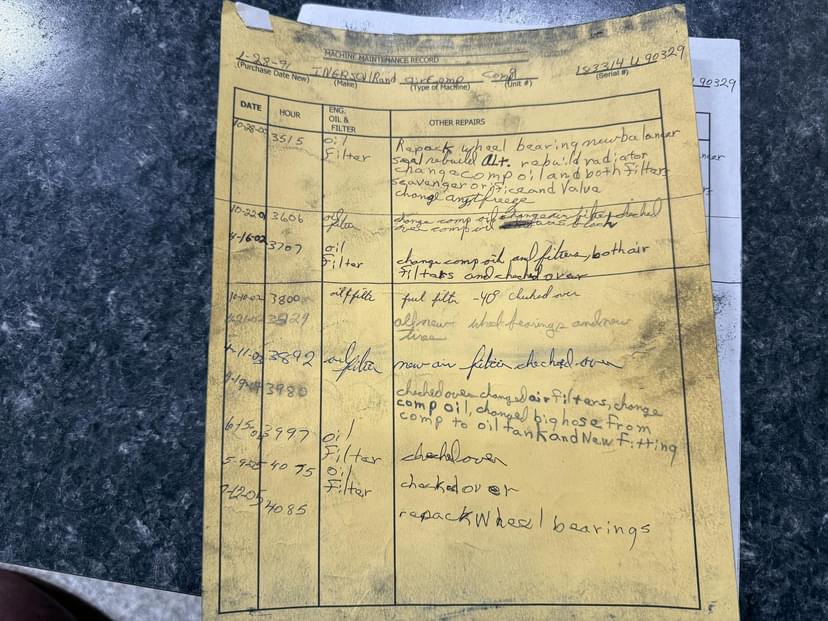 MACHINE MAINTENANCE RECORD
1-28-91 INGERSOLLRand air Comp Comp 183314 U 90329
(Purchase Date New) (Make) (Type of Machine) (Unit #) (Serial #)
90329
DATE HOUR ENG. OIL & FILTER OTHER REPAIRS
3515 oil Repack wheel bearing new balancer
Filter seal rebuild Alt. rebuild radiator
change comp oil and both filters
scavenger orifice and Valva
change
3606 oil change comp oil change air filter checked
filter over comp oil
4-16-02 3707 oil change comp oil and filters, both air
Filter filters and checked over
10-10-02 3800 oil + filter fuel filter -40° checked over
3929 all new wheel bearings and new
tires
4-11-03 3892 oil filter new air filter checked over
3980 checked over changed air filters, change
comp oil, changed big hose from
comp to oil tank and New Fitting
3997 oil
Filter checked over
4075 oil
Filter checked over
4085 repack wheel bearings